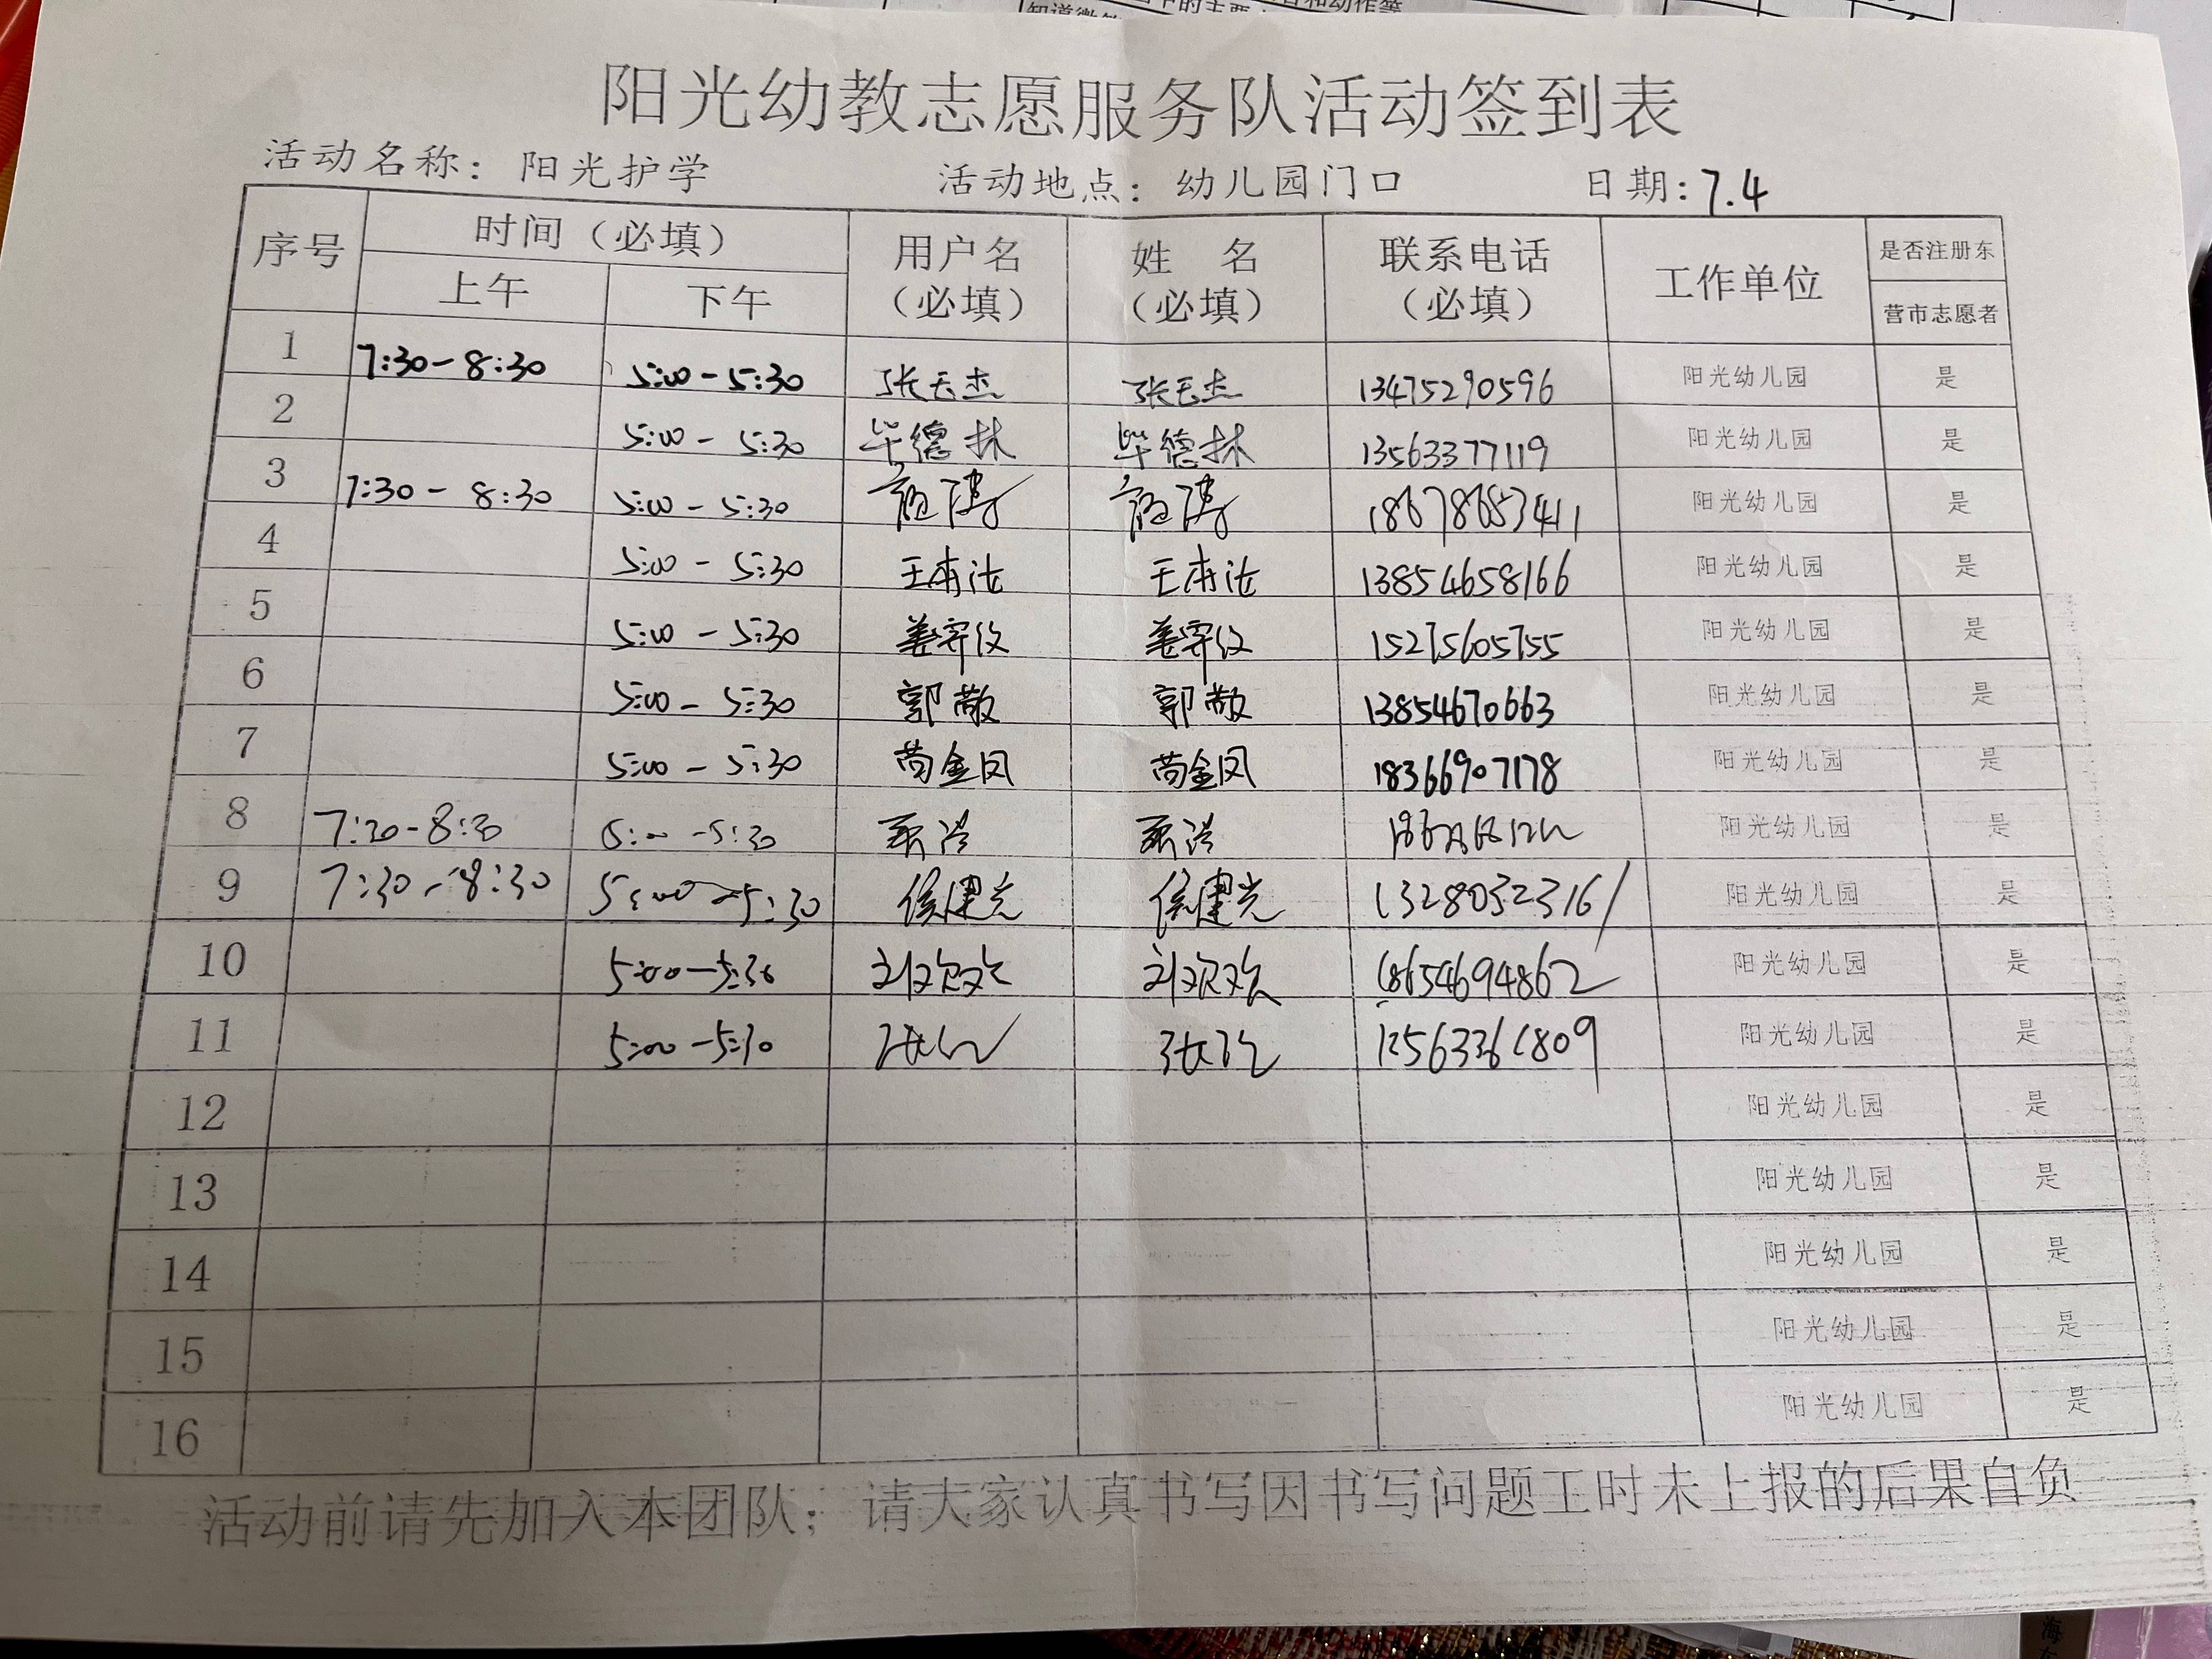 阳光幼教志愿服务队活动签到表
活动名称：阳光护学 活动地点：幼儿园门口 日期：7.4
序号 时间（必填） 用户名（必填） 姓 名（必填） 联系电话（必填） 工作单位 是否注册东营市志愿者
上午 下午
1 7:30-8:30 5:00-5:30 张玉杰 张玉杰 13475290596 阳光幼儿园 是
2 5:00-5:30 毕德林 毕德林 13563377119 阳光幼儿园 是
3 7:30-8:30 5:00-5:30 18678683411 阳光幼儿园 是
4 5:00-5:30 13854658166 阳光幼儿园 是
5 5:00-5:30 15275605755 阳光幼儿园 是
6 5:00-5:30 郭敬 郭敬 13854670663 阳光幼儿园 是
7 5:00-5:30 苟金凤 苟金凤 18366907178 阳光幼儿园 是
8 7:30-8:30 5:00-5:30 阳光幼儿园 是
9 7:30-8:30 5:00-5:30 侯建光 侯建光 13280323161 阳光幼儿园 是
10 5:00-5:30 刘欢欢 刘欢欢 18654694862 阳光幼儿园 是
11 5:00-5:30 阳光幼儿园 是
12 阳光幼儿园 是
13 阳光幼儿园 是
14 阳光幼儿园 是
15 阳光幼儿园 是
16 阳光幼儿园 是
活动前请先加入本团队；请大家认真书写因书写问题工时未上报的后果自负